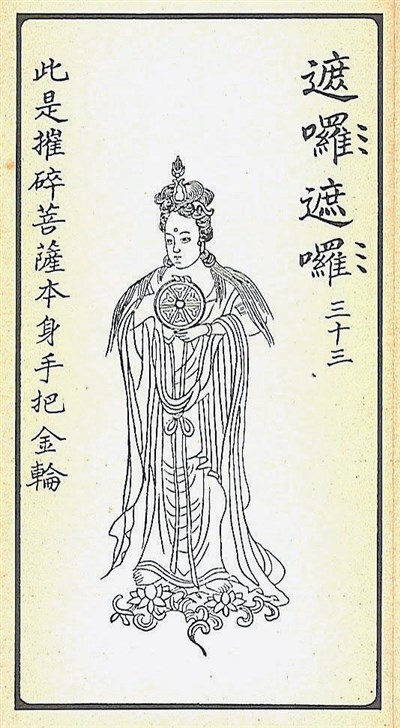 遮囉遮囉 三十三
此是摧碎菩薩本身手把金輪